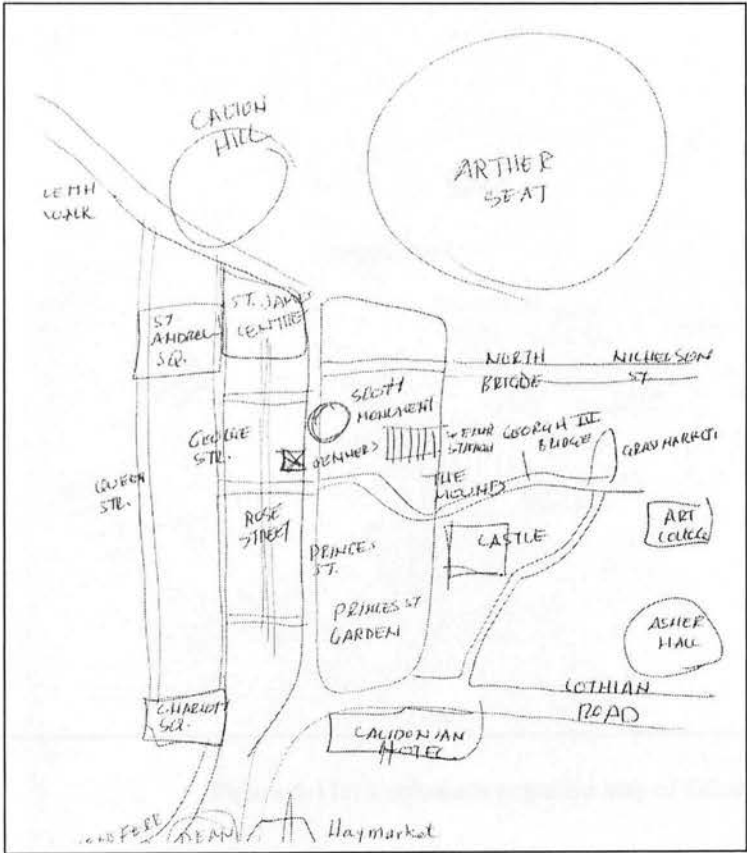 CALTON
HILL
ARTHER
SEAT
LEITH
WALK
ST
ANDREW
SQ.
ST. JAMES
CENTRE
NORTH
BRIGDE
NICHELSON
ST.
SCOTT
MONUMENT
GEORGE
STR.
JENNERS
STATION
GEORGH III
BRIDGE
GRASMARKET
QUEEN
STR.
THE
MOUND
ROSE
STREET
PRINCES
ST.
CASTLE
ART
COLLEGE
PRINCES ST
GARDEN
ASHER
HALL
CHARLOTT
SQ.
LOTHIAN
ROAD
CALIDONIAN
HOTEL
FERE
DEAN
Haymarket